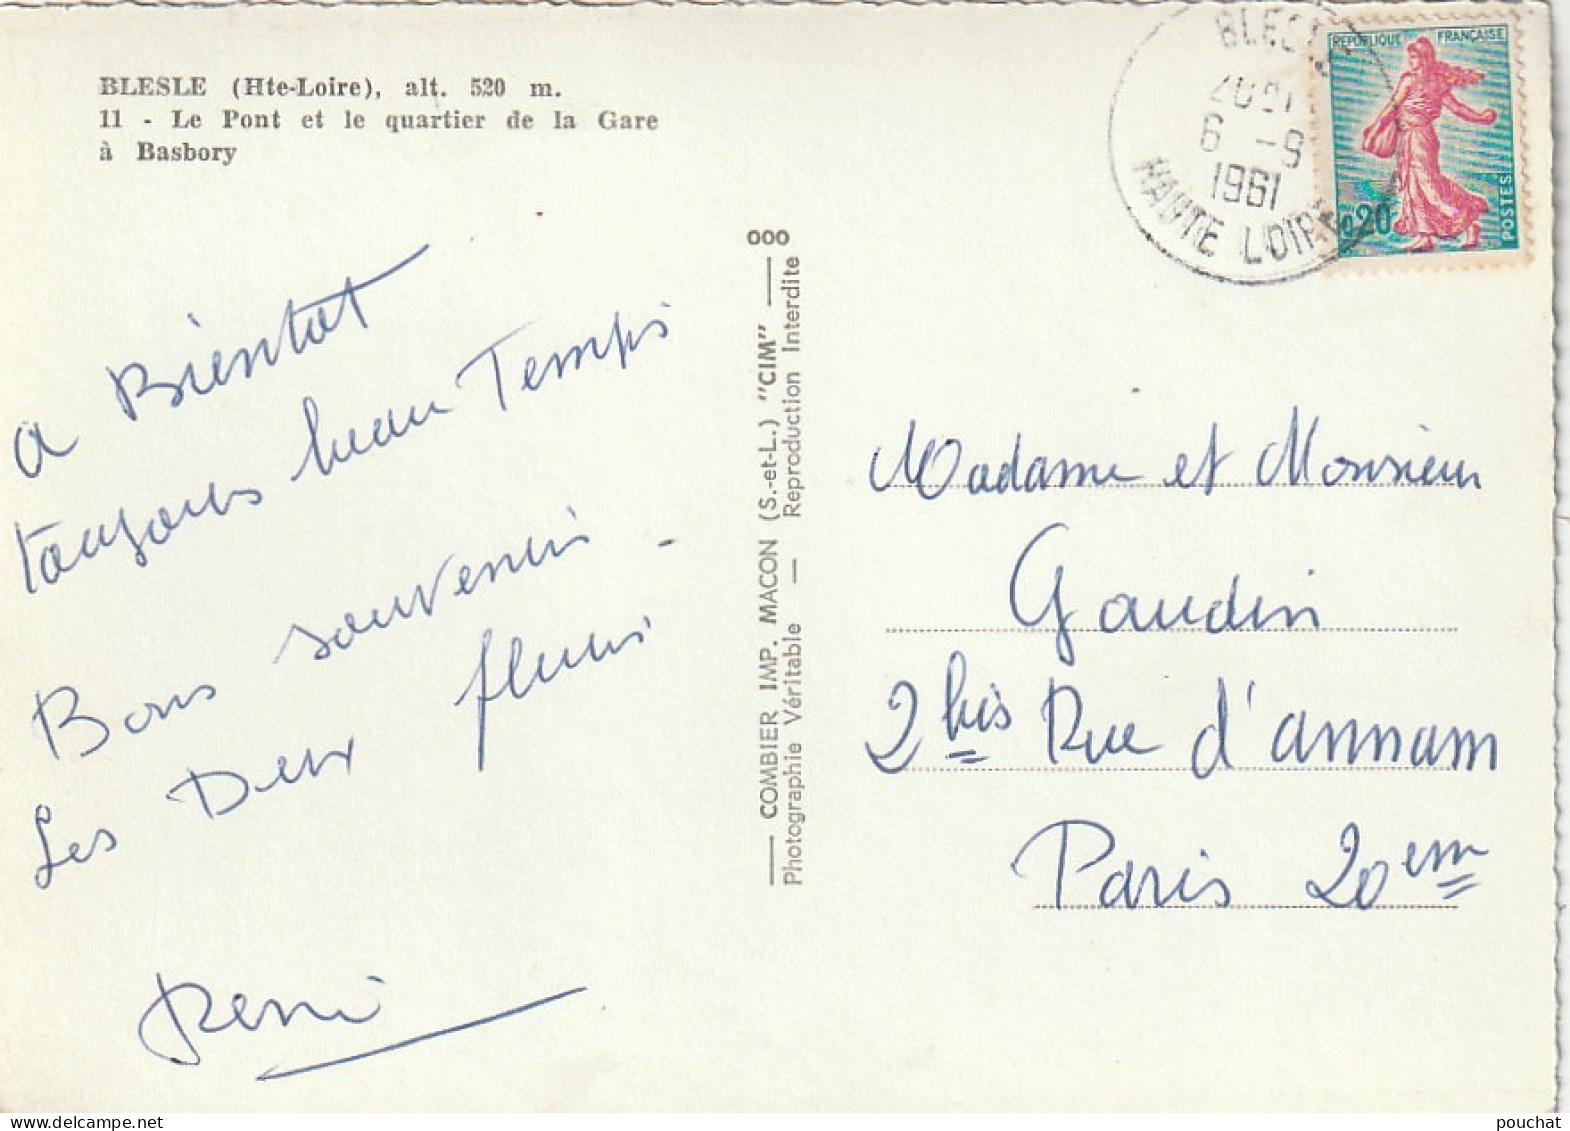 BLESLE (Hte-Loire), alt. 520 m.
11 - Le Pont et le quartier de la Gare
à Basbory
a Bientot
toujours beau Temps
Bons souvenirs -
Les Deux
000
COMBIER IMP. MACON (S.-et-L.) "CIM"
Photographie Véritable — Reproduction Interdite
6 -9
1961
HAUTE LOIRE
REPUBLIQUE FRANÇAISE
0,20
POSTES
Madame et Monsieur
Gaudin
2 bis Rue d'annam
Paris 20em
pouchat